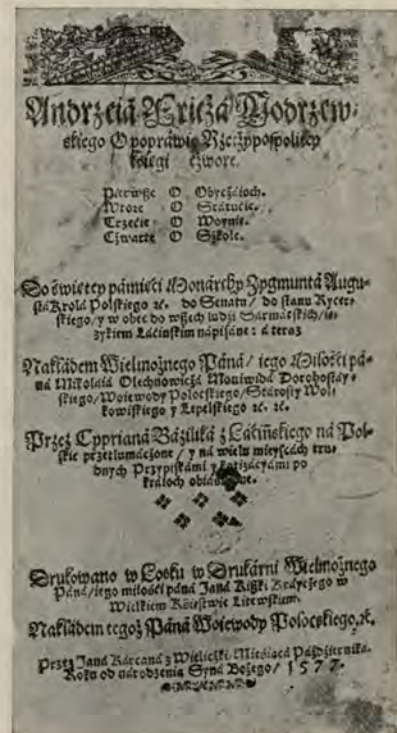 Andrzeiá Fricża Modrzew-
skiego O popráwie Rzeczypospolitey
księgi czwore.
Pierwsze O Obyczáioch.
Wtore O Státućie.
Trzećie O Woynie.
Czwarte O Szkole.
Do świętey pámięći Monárchy Zygmuntá Augu-
stá Krolá Polskiego ꝛc. do Senatu / do stanu Rycer-
skiego / y w obec do wszech ludzi Sármátskich / ię-
zykiem Łáćińskim nápisáne: á teraz
Nakładem Wielmożnego Páná / iego Miłośći pá-
ná Mikołáiá Olechnowiczá Moniwidá Dorohostáy-
skiego / Woiewody Połockiego / Stárosty Woł-
kowiskiego y Lepelskiego ꝛc. ꝛc.
Przez Cypriáná Bázyliká z Łáćińskiego ná Pol-
skie przetłumáczone / y ná wielu mieyscách tru-
dnych Przypiskámi y
kráioch
Drukowano w Łosku w Drukárni Wielmożnego
Páná / iego miłośći páná Janá Kiszki Kráyczego w
Wielkiem Księstwie Litewskiem.
Nakładem tegoż Páná Woiewody Połockiego, ꝛc.
Przez Janá Kárcaná z Wieliczki Mieśiącá Páźdźierniká.
Roku od národzenia Syná Bożego / 1577.